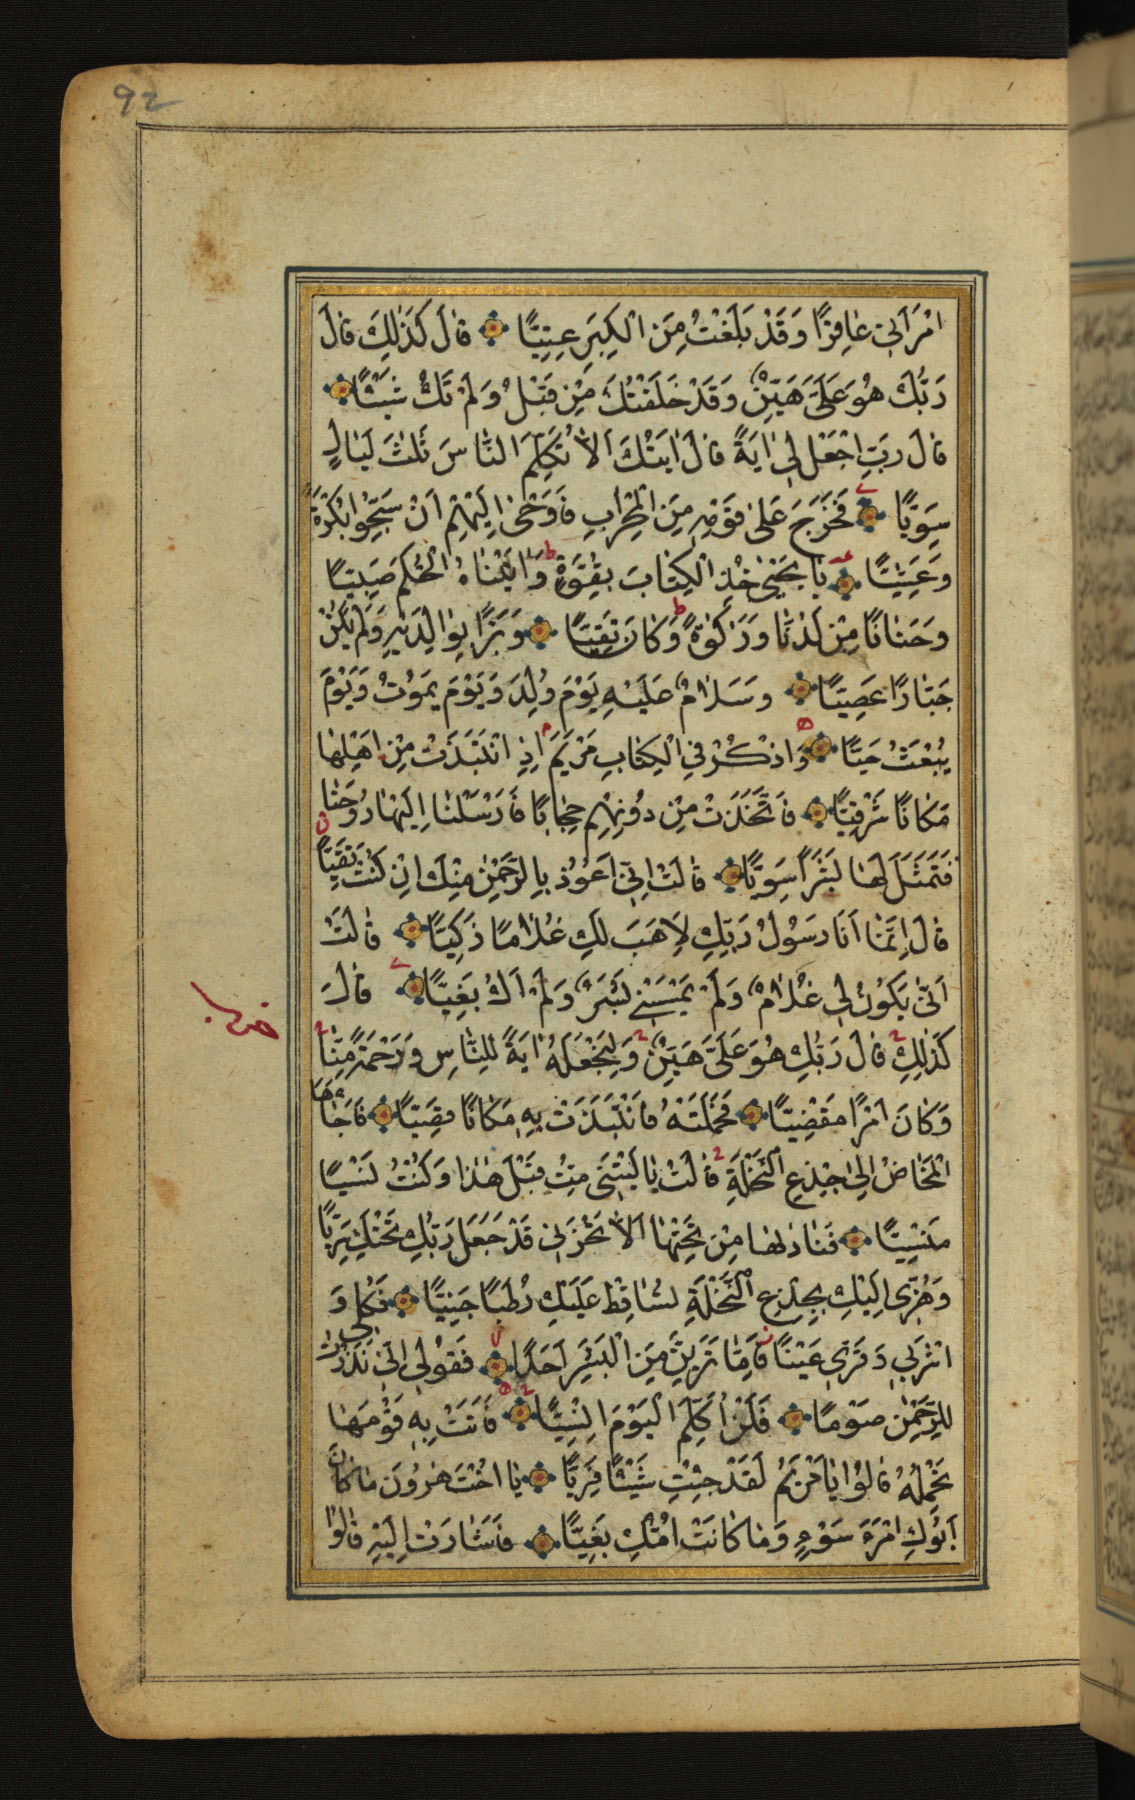 92
امْرَاَتِي عَاقِرًا وَقَدْ بَلَغْتُ مِنَ الْكِبَرِ عِتِيًّا قَالَ كَذٰلِكَ قَالَ
رَبُّكَ هُوَ عَلَيَّ هَيِّنٌ وَقَدْ خَلَقْتُكَ مِنْ قَبْلُ وَلَمْ تَكُ شَيْئًا
قَالَ رَبِّ اجْعَلْ لِي اٰيَةً قَالَ اٰيَتُكَ اَلَّا تُكَلِّمَ النَّاسَ ثَلٰثَ لَيَالٍ
سَوِيًّا فَخَرَجَ عَلٰى قَوْمِهِ مِنَ الْمِحْرَابِ فَاَوْحٰى اِلَيْهِمْ اَنْ سَبِّحُوا بُكْرَةً
وَعَشِيًّا يَا يَحْيٰى خُذِ الْكِتَابَ بِقُوَّةٍ وَاٰتَيْنَاهُ الْحُكْمَ صَبِيًّا
وَحَنَانًا مِنْ لَدُنَّا وَزَكٰوةً وَكَانَ تَقِيًّا وَبَرًّا بِوَالِدَيْهِ وَلَمْ يَكُنْ
جَبَّارًا عَصِيًّا وَسَلَامٌ عَلَيْهِ يَوْمَ وُلِدَ وَيَوْمَ يَمُوتُ وَيَوْمَ
يُبْعَثُ حَيًّا وَاذْكُرْ فِي الْكِتَابِ مَرْيَمَ اِذِ انْتَبَذَتْ مِنْ اَهْلِهَا
مَكَانًا شَرْقِيًّا فَاتَّخَذَتْ مِنْ دُونِهِمْ حِجَابًا فَاَرْسَلْنَا اِلَيْهَا رُوحَنَا
فَتَمَثَّلَ لَهَا بَشَرًا سَوِيًّا قَالَتْ اِنِّي اَعُوذُ بِالرَّحْمٰنِ مِنْكَ اِنْ كُنْتَ تَقِيًّا
قَالَ اِنَّمَا اَنَا رَسُولُ رَبِّكِ لِاَهَبَ لَكِ غُلَامًا زَكِيًّا قَالَتْ
اَنّٰى يَكُونُ لِي غُلَامٌ وَلَمْ يَمْسَسْنِي بَشَرٌ وَلَمْ اَكُ بَغِيًّا قَالَ
كَذٰلِكِ قَالَ رَبُّكِ هُوَ عَلَيَّ هَيِّنٌ وَلِنَجْعَلَهُ اٰيَةً لِلنَّاسِ وَرَحْمَةً مِنَّا
وَكَانَ اَمْرًا مَقْضِيًّا فَحَمَلَتْهُ فَانْتَبَذَتْ بِهِ مَكَانًا قَصِيًّا فَاَجَاءَهَا
الْمَخَاضُ اِلٰى جِذْعِ النَّخْلَةِ قَالَتْ يَا لَيْتَنِي مِتُّ قَبْلَ هٰذَا وَكُنْتُ نَسْيًا
مَنْسِيًّا فَنَادٰىهَا مِنْ تَحْتِهَا اَلَّا تَحْزَنِي قَدْ جَعَلَ رَبُّكِ تَحْتَكِ سَرِيًّا
وَهُزِّي اِلَيْكِ بِجِذْعِ النَّخْلَةِ تُسَاقِطْ عَلَيْكِ رُطَبًا جَنِيًّا فَكُلِي وَ
اشْرَبِي وَقَرِّي عَيْنًا فَاِمَّا تَرَيِنَّ مِنَ الْبَشَرِ اَحَدًا فَقُولِي اِنِّي نَذَرْتُ
لِلرَّحْمٰنِ صَوْمًا فَلَنْ اُكَلِّمَ الْيَوْمَ اِنْسِيًّا فَاَتَتْ بِهِ قَوْمَهَا
تَحْمِلُهُ قَالُوا يَا مَرْيَمُ لَقَدْ جِئْتِ شَيْئًا فَرِيًّا يَا اُخْتَ هٰرُونَ مَا كَانَ
اَبُوكِ امْرَءَ سَوْءٍ وَمَا كَانَتْ اُمُّكِ بَغِيًّا فَاَشَارَتْ اِلَيْهِ قَالُوا